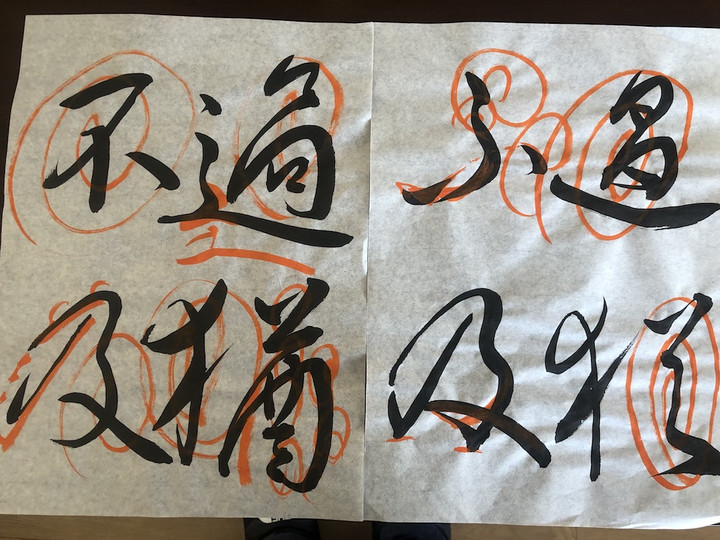 過猶
不及
過猶
不及